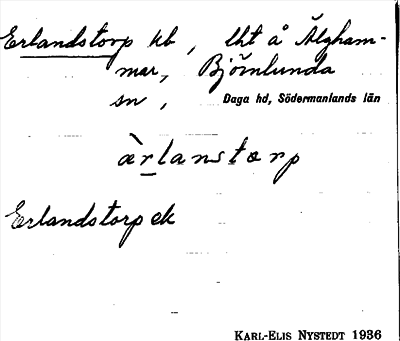 Erlandstorp hb, lht å Älgham-
mar, Björnlunda
sn, Daga hd, Södermanlands län
àrlanstorp
Erlandstorp ek
KARL-ELIS NYSTEDT 1936